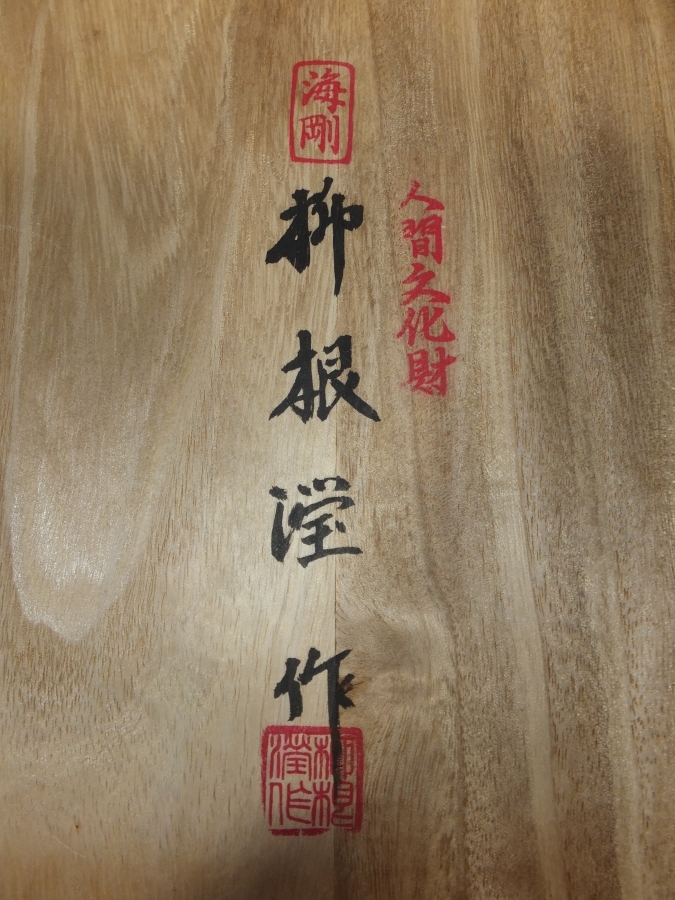 人間文化財
海剛
柳根瀅作
柳根
瀅作